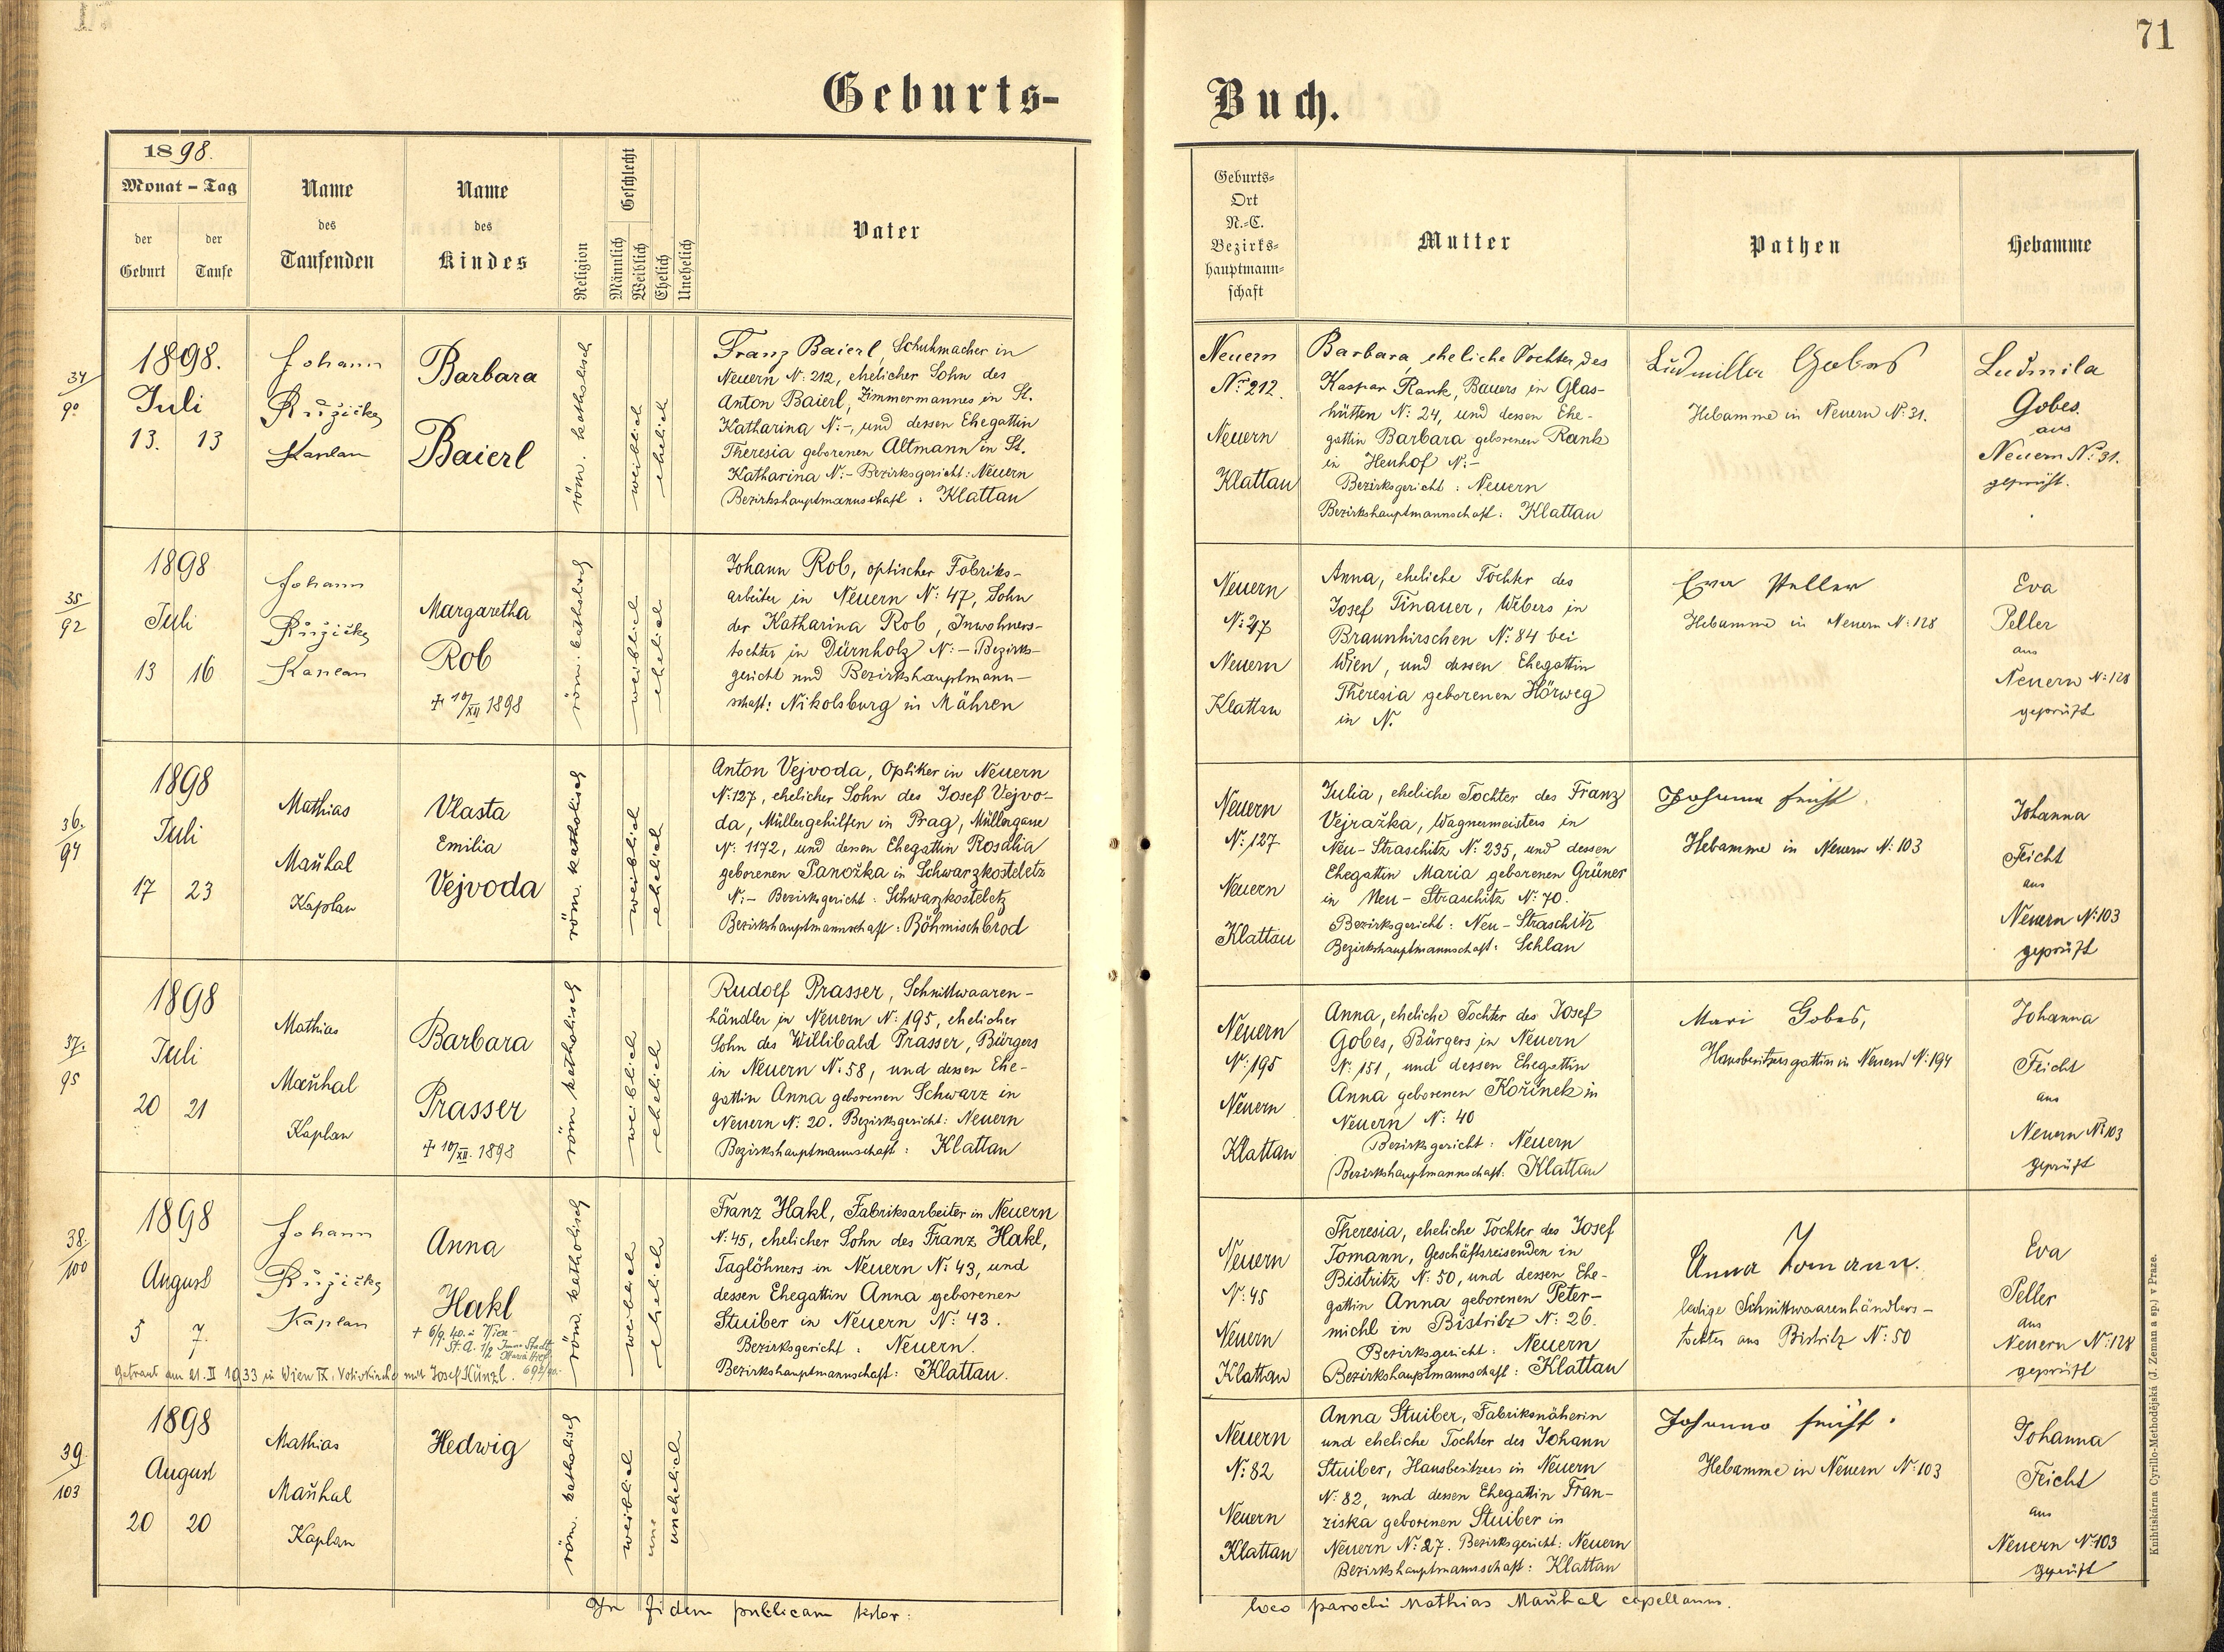 71
Geburts-
Buch.
1898.
Monat - Tag
der Geburt
der Taufe
Name des Taufenden
Name des Kindes
Religion
Geschlecht
Männlich
Weiblich
Ehelich
Unehelich
Vater
Geburts-
Ort
N.-C.
Bezirks-
hauptmann-
schaft
Mutter
Pathen
Hebamme
34/90
1898.
Juli
13. 13
Johann
Růžička
Kaplan
Barbara
Baierl
röm. katholisch
weiblich
ehelich
Franz Baierl, Schuhmacher in
Neuern N: 212, ehelicher Sohn des
Anton Baierl, Zimmermannes in St.
Katharina N:-, und dessen Ehegattin
Theresia geborenen Altmann in St.
Katharina N:- Bezirksgericht: Neuern
Bezirkshauptmannschaft: Klattau
Neuern
Nr. 212.
Neuern
Klattau
Barbara, eheliche Tochter des
Kaspar Rank, Bauers in Glas-
hütten N: 24, und dessen Ehe-
gattin Barbara geborenen Rank
in Heuhof N:-
Bezirksgericht: Neuern
Bezirkshauptmannschaft: Klattau
Ludmilla Gobes
Hebamme in Neuern N: 31.
Ludmila
Gobes.
aus
Neuern N: 31.
geprüft.
35/92
1898
Juli
13 16
Johann
Růžička
Kaplan
Margaretha
Rob
+ 10/XII 1898
röm. katholisch
weiblich
ehelich
Johann Rob, optischer Fabriks-
arbeiter in Neuern N: 47, Sohn
der Katharina Rob, Inwohners-
tochter in Dürnholz N:- Bezirks-
gericht und Bezirkshauptmann-
schaft: Nikolsburg in Mähren
Neuern
N: 47
Neuern
Klattau
Anna, eheliche Tochter des
Josef Tinauer, Webers in
Braunhirschen N: 84 bei
Wien, und dessen Ehegattin
Theresia geborenen Hörweg
in N.
Eva Peller
Hebamme in Neuern N: 128
Eva
Peller
aus
Neuern N: 128
geprüft
36./94
1898
Juli
17 23
Mathias
Mauhal
Kaplan
Vlasta
Emilia
Vejvoda
röm. katholisch
weiblich
ehelich
Anton Vejvoda, Optiker in Neuern
N: 127, ehelicher Sohn des Josef Vejvo-
da, Müllergehilfen in Prag, Müllergasse
N: 1172, und dessen Ehegattin Rosalia
geborenen Panožka in Schwarzkosteletz
N:- Bezirksgericht: Schwarzkosteletz
Bezirkshauptmannschaft: Böhmischbrod
Neuern
N: 127
Neuern
Klattau
Julia, eheliche Tochter des Franz
Vejražka, Wagnermeisters in
Neu-Straschitz N: 235, und dessen
Ehegattin Maria geborenen Grüner
in Neu-Straschitz N: 70.
Bezirksgericht: Neu-Straschitz
Bezirkshauptmannschaft: Schlan
Johanna Feicht
Hebamme in Neuern N: 103
Johanna
Feicht
aus
Neuern N: 103
geprüft
37./95
1898
Juli
20 21
Mathias
Mauhal
Kaplan
Barbara
Prasser
+ 10/XII. 1898
röm katholisch
weiblich
ehelich
Rudolf Prasser, Schnittwaaren-
händler in Neuern N: 195, ehelicher
Sohn des Willibald Prasser, Bürgers
in Neuern N: 58, und dessen Ehe-
gattin Anna geborenen Schwarz in
Neuern N: 20. Bezirksgericht: Neuern
Bezirkshauptmannschaft: Klattau
Neuern
N: 195
Neuern
Klattau
Anna, eheliche Tochter des Josef
Gobes, Bürgers in Neuern
N: 151, und dessen Ehegattin
Anna geborenen Kořinek in
Neuern N: 40
Bezirksgericht: Neuern
Bezirkshauptmannschaft: Klattau
Mari Gobes,
Hausbesitzersgattin in Neuern N: 194
Johanna
Feicht
aus
Neuern N: 103
geprüft
38./100
1898
August
5 7.
Johann
Růžička
Kaplan
Anna
Hakl
+ 6/9. 40. in Wien
getraut am 21. II 1933 in Wien IX, Votivkirche mit Josef Künzl.
röm. katholisch
weiblich
ehelich
Franz Hakl, Fabriksarbeiter in Neuern
N: 45, ehelicher Sohn des Franz Hakl,
Taglöhners in Neuern N: 43, und
dessen Ehegattin Anna geborenen
Stuiber in Neuern N: 43.
Bezirksgericht: Neuern.
Bezirkshauptmannschaft: Klattau.
Neuern
N: 45
Neuern
Klattau
Theresia, eheliche Tochter des Josef
Tomann, Geschäftsreisenden in
Bistritz N: 50, und dessen Ehe-
gattin Anna geborenen Peter-
michl in Bistritz N: 26.
Bezirksgericht: Neuern
Bezirkshauptmannschaft: Klattau
Anna Tomann.
ledige Schnittwaarenhändlers-
tochter aus Bistritz N: 50
Eva
Peller
aus
Neuern N: 128
geprüft
39./103
1898
August
20 20
Mathias
Mauhal
Kaplan
Hedwig
röm. katholisch
weiblich
une
unehelich
Neuern
N: 82
Neuern
Klattau
Anna Stuiber, Fabriksnäherin
und eheliche Tochter des Johann
Stuiber, Hausbesitzers in Neuern
N: 82, und dessen Ehegattin Fran-
ziska geborenen Stuiber in
Neuern N: 27. Bezirksgericht: Neuern
Bezirkshauptmannschaft: Klattau
Johanna Feicht.
Hebamme in Neuern N: 103
Johanna
Feicht
aus
Neuern N: 103
geprüft
In fidem publicam testor:
loco parochi Mathias Mauhal capellanus.
Knihtiskárna Cyrillo-Methodějská (J. Zeman a sp.) v Praze.